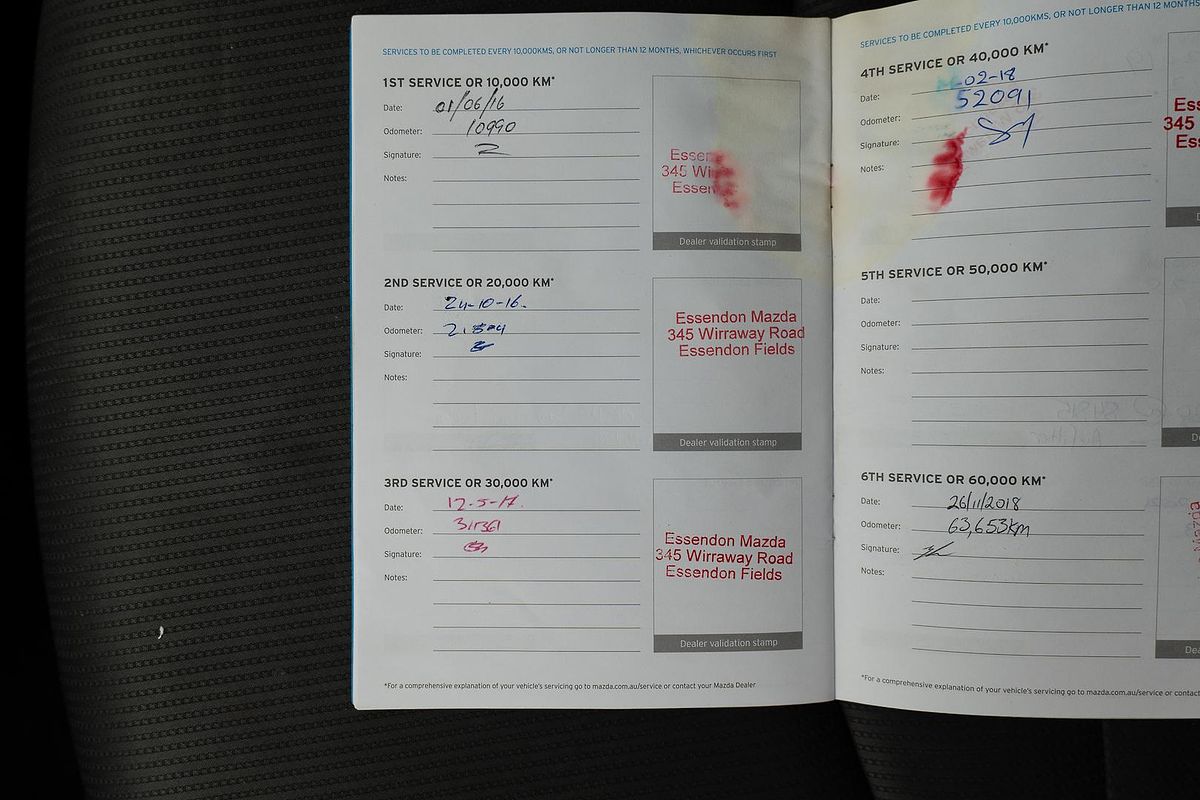 SERVICES TO BE COMPLETED EVERY 10,000KMS, OR NOT LONGER THAN 12 MONTHS, WHICHEVER OCCURS FIRST
1ST SERVICE OR 10,000 KM*
Date: 01/06/16
Odometer: 10990
Signature:
Notes:
Essen
345 Wi
Essen
Dealer validation stamp
2ND SERVICE OR 20,000 KM*
Date: 24-10-16.
Odometer:
Signature:
Notes:
Essendon Mazda
345 Wirraway Road
Essendon Fields
Dealer validation stamp
3RD SERVICE OR 30,000 KM*
Date: 12-5-17.
Odometer:
Signature:
Notes:
Essendon Mazda
345 Wirraway Road
Essendon Fields
Dealer validation stamp
*For a comprehensive explanation of your vehicle's servicing go to mazda.com.au/service or contact your Mazda Dealer
SERVICES TO BE COMPLETED EVERY 10,000KMS, OR NOT LONGER THAN 12 MONTHS
4TH SERVICE OR 40,000 KM*
Date: -02-18
Odometer: 52091
Signature:
Notes:
Ess
345
Ess
D
5TH SERVICE OR 50,000 KM*
Date:
Odometer:
Signature:
Notes:
De
6TH SERVICE OR 60,000 KM*
Date: 26/11/2018
Odometer: 63,653km
Signature:
Notes:
Dea
*For a comprehensive explanation of your vehicle's servicing go to mazda.com.au/service or contact